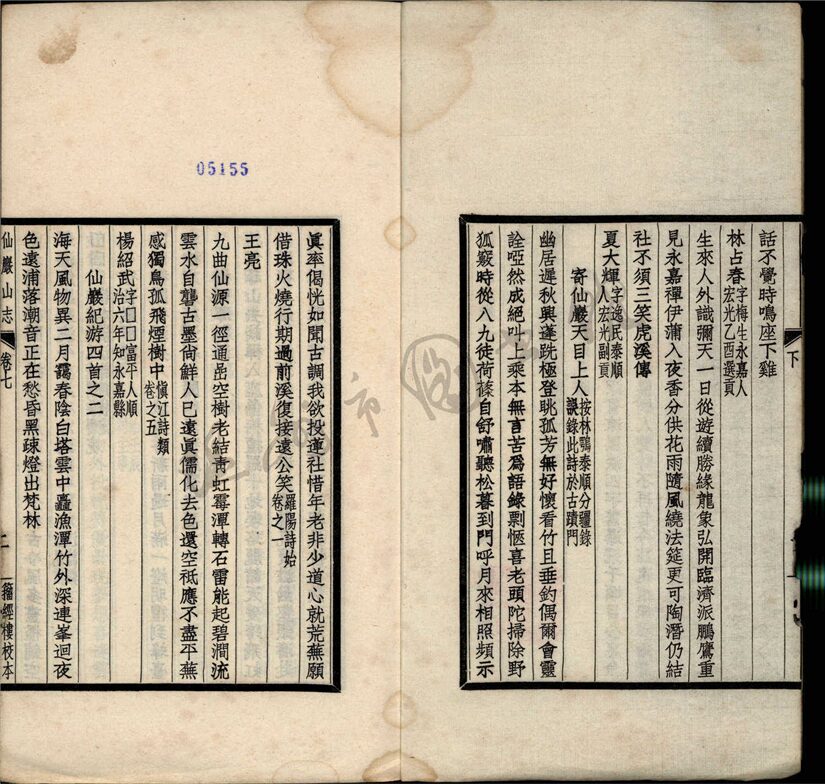 話不覺時鳴座下雞
林占春字梅生永嘉人宏光乙酉選貢
生來人外識彌天一日從遊續勝緣龍象弘開臨濟派鵬鷹重
見永嘉禪伊蒲入夜香分供花雨隨風繞法筵更可陶潛仍結
社不須三笑虎溪傳
夏大輝字逸民泰順人宏光副貢
寄仙巖天目上人按林鶚泰順分疆錄誤錄此詩於古蹟門
幽居遲秋興蓬跣極登眺孤芳無好懷看竹且垂釣偶爾會靈
詮啞然成絕叫上乘本無言苦爲語錄剽愜喜老頭陀掃除野
狐竅時從八九徒荷蓧自舒嘯聽松暮到門呼月來相照頻示
下
05155
眞率偈恍如聞古調我欲投蓮社惜年老非少道心就荒蕪願
借珠火燒行期過前溪復接遠公笑羅陽詩始卷之一
王亮
九曲仙源一徑通嵒空樹老結靑虹霉潭轉石雷能起碧澗流
雲水自礱古墨尙鮮人已遠眞儒化去色還空祇應不盡平蕪
感獨鳥孤飛煙樹中愼江詩類卷之五
楊紹武字囗囗富平人順治六年知永嘉縣
仙巖紀游四首之二
海天風物異二月靄春陰白塔雲中矗漁潭竹外深連峯迴夜
色遠浦落潮音正在愁昏黑疎燈出梵林
仙巖山志
卷七
二
籀經樓校本